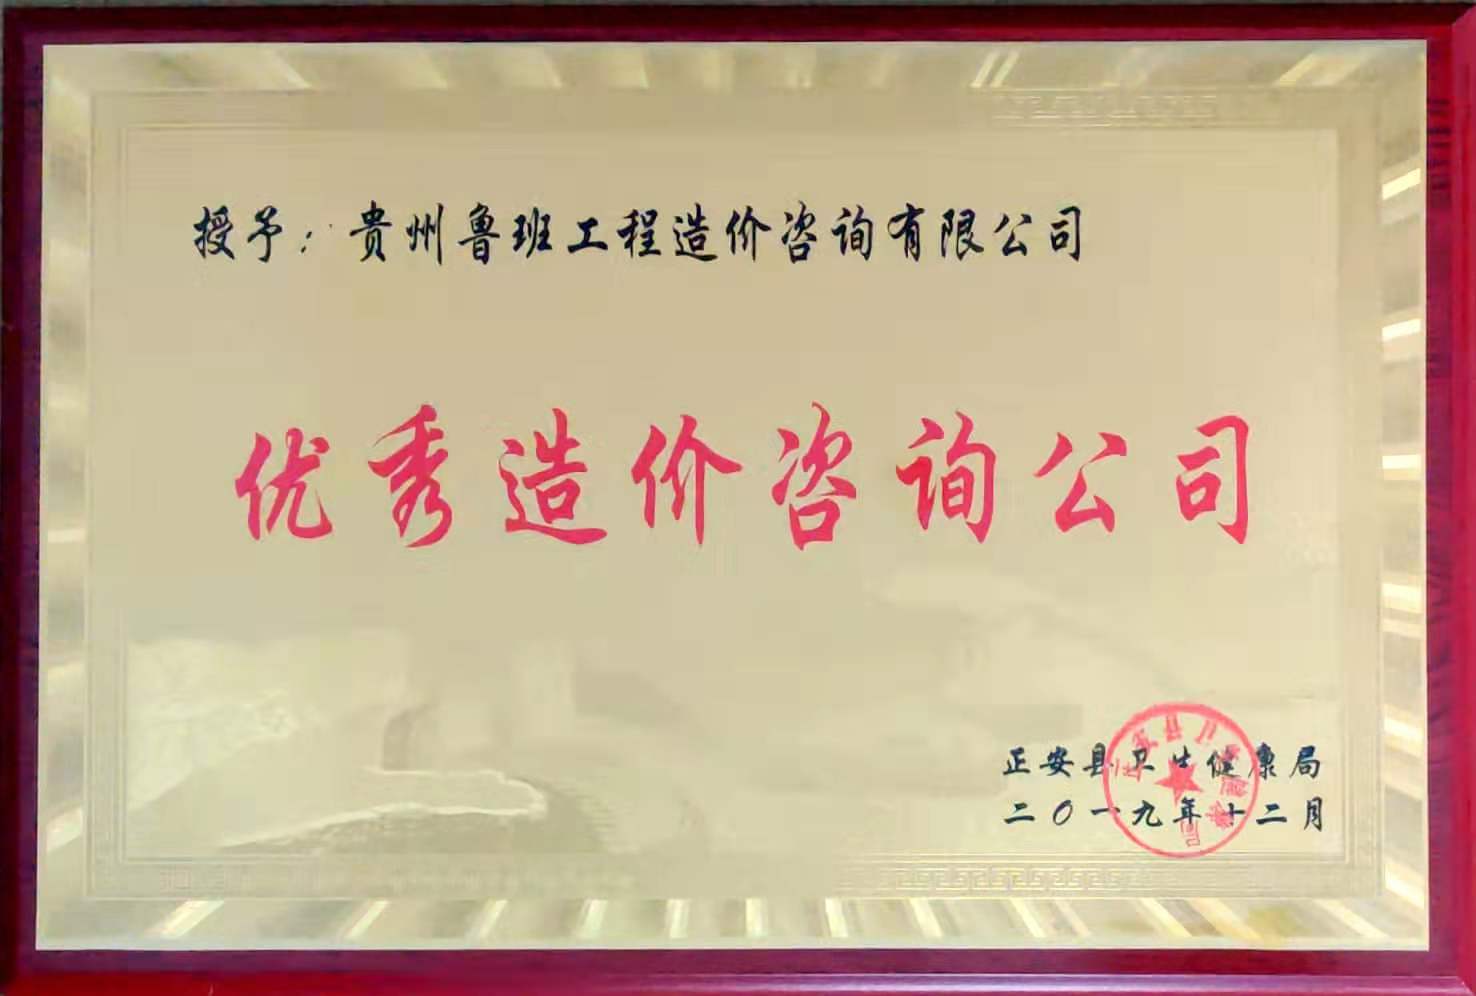 授予：贵州鲁班工程造价咨询有限公司
优秀造价咨询公司
正安县卫生健康局
二〇一九年十二月